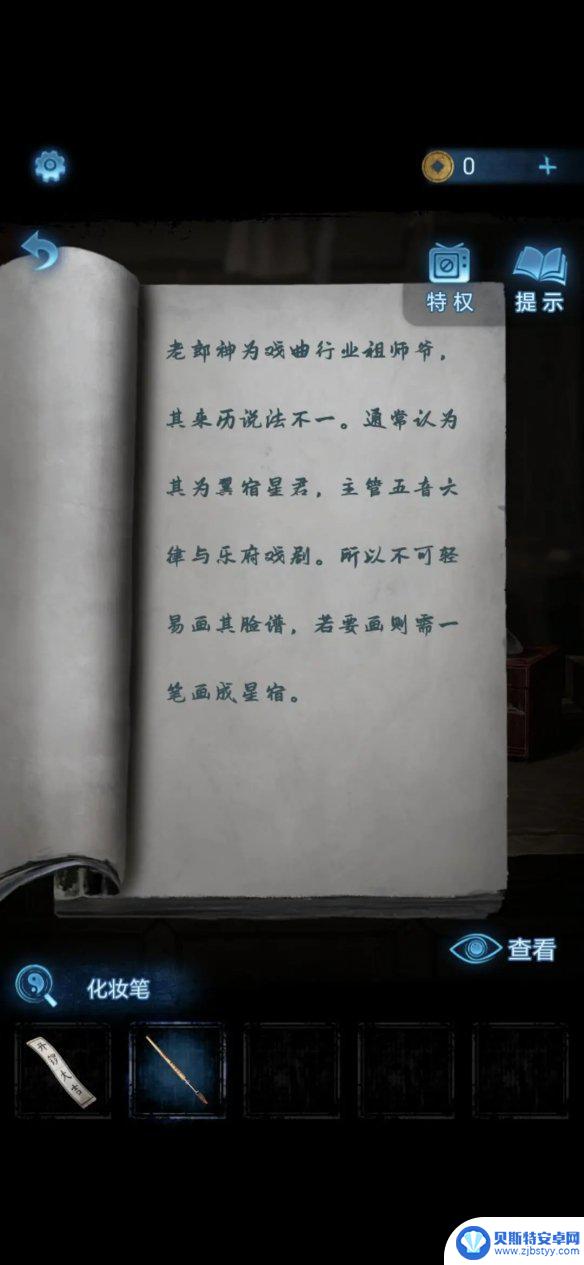 0
特权
提示
老郎神为戏曲行业祖师爷，
其来历说法不一。通常认为
其为翼宿星君，主管五音六
律与乐府戏剧。所以不可轻
易画其脸谱，若要画则需一
笔画成星宿。
查看
化妆笔
开锣大吉
贝斯特安卓网
www.zjbstyy.com